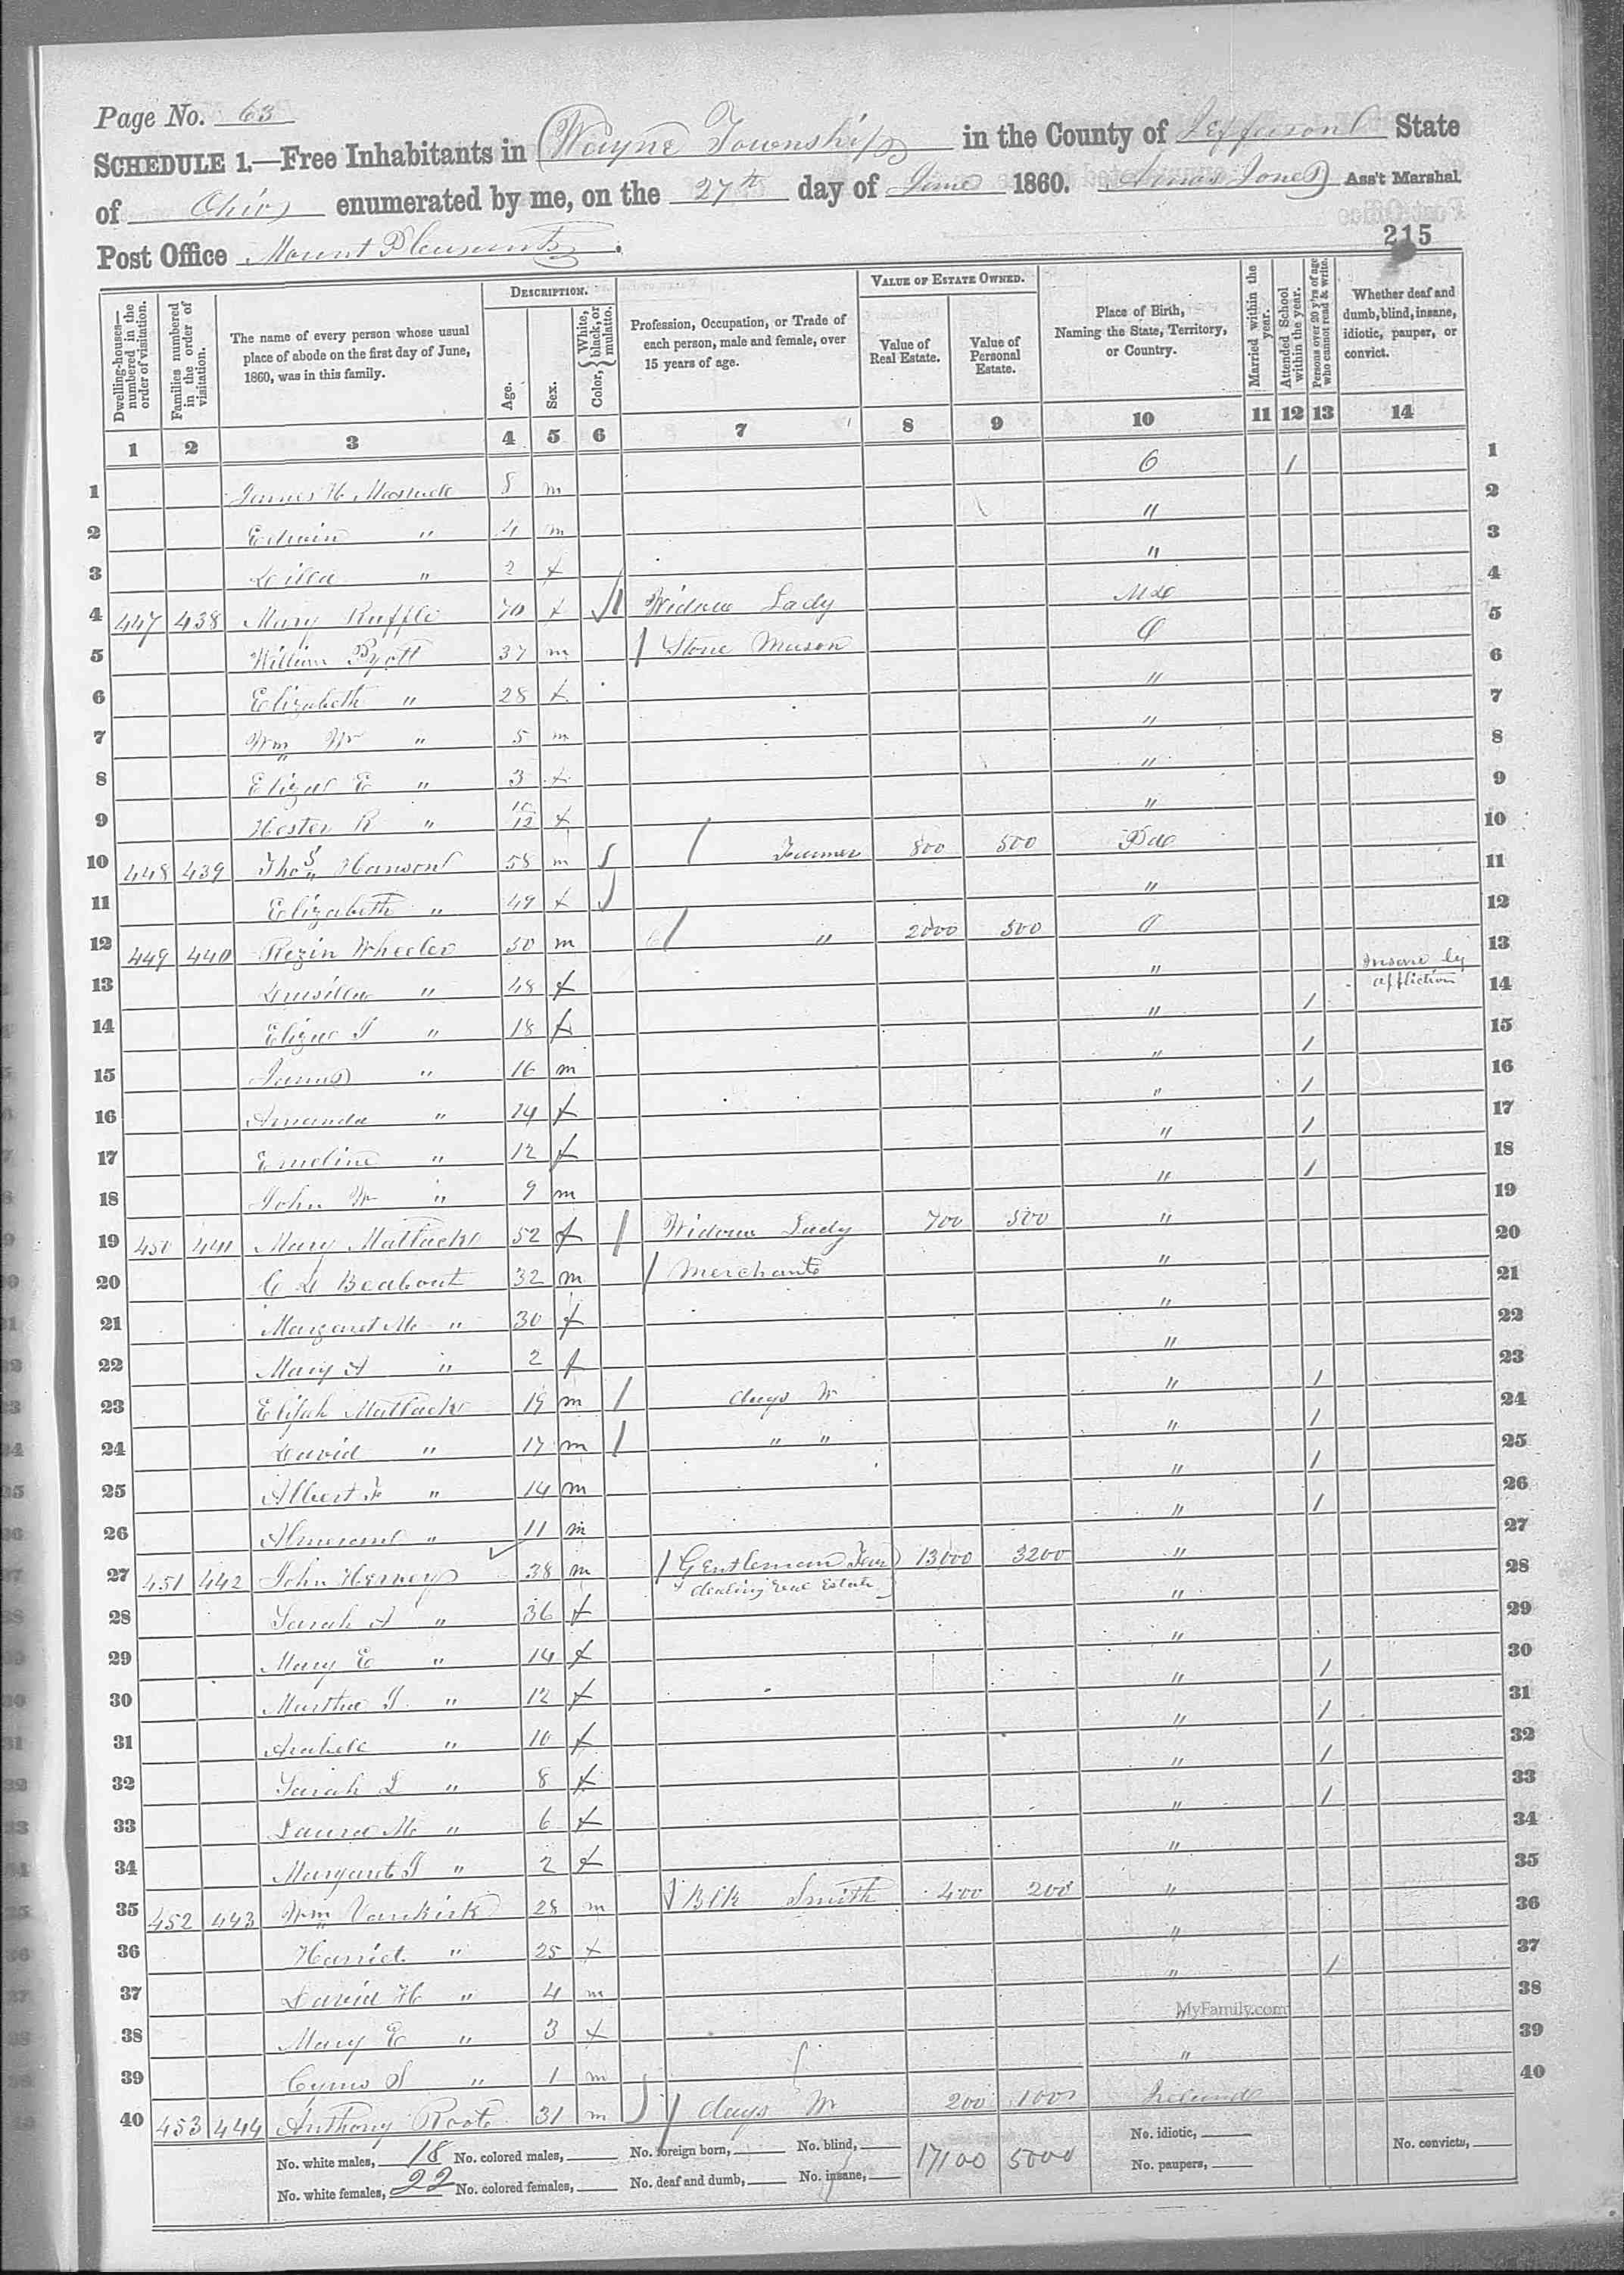 Page No. 63
SCHEDULE 1.—Free Inhabitants in Wayne Township in the County of Jefferson State
of Ohio enumerated by me, on the 27th day of June 1860. Jones Ass't Marshal
Post Office Mount Pleasant.
215
Dwelling-houses—numbered in the order of visitation.
Families numbered in the order of visitation.
The name of every person whose usual place of abode on the first day of June, 1860, was in this family.
DESCRIPTION.
Age.
Sex.
Color, { White, black, or mulatto.
Profession, Occupation, or Trade of each person, male and female, over 15 years of age.
VALUE OF ESTATE OWNED.
Value of Real Estate.
Value of Personal Estate.
Place of Birth, Naming the State, Territory, or Country.
Married within the year.
Attended School within the year.
Persons over 20 y'rs of age who cannot read & write.
Whether deaf and dumb, blind, insane, idiotic, pauper, or convict.
1 2 3 4 5 6 7 8 9 10 11 12 13 14
1 James H 8 m O / 1
2 Edwin " 4 m " 2
3 " 2 f " 3
4 447 438 Mary Ruffle 70 f / Widow Lady Md 4
5 William Pyott 37 m / Stone Mason O 5
6 Elizabeth " 28 f " 6
7 Wm W " 5 m " 7
8 Elizab E " 3 f " 8
9 Hester R " 10/12 f " 9
10 448 439 Thos Hanson 58 m / Farmer 800 500 Pa 10
11 Elizabeth " 49 f " 11
12 449 440 Rezin Wheeler 50 m / " 2000 500 O 12
13 Drusilla " 48 f " Insane by affliction 13
14 Eliza J " 18 f " / 14
15 James " 16 m " / 15
16 Amanda " 14 f " / 16
17 Emeline " 12 f " / 17
18 John W " 9 m " / 18
19 450 441 Mary Matlack 52 f / Widow Lady 700 500 " 19
20 C L Beabout 32 m / Merchant " 20
21 Margaret M " 30 f " 21
22 Mary A " 2 f " 22
23 Elijah Matlack 19 m / days W " / 23
24 David " 17 m / " " " / 24
25 Albert F " 14 m " / 25
26 " 11 m " / 26
27 451 442 John Hervey 38 m / Gentleman 13000 3200 " 27
dealing real Estate
28 Sarah A " 36 f " 28
29 Mary E " 14 f " 29
30 Martha J. " 12 f " / 30
31 Arabell " 10 f " / 31
32 Sarah L " 8 f " / 32
33 Laura M " 6 f " / 33
34 Margaret J " 2 f " 34
35 452 443 Wm Vankirk 28 m / Blk Smith 400 200 " 35
36 Harriet " 25 f " 36
37 David H " 4 m " / 37
38 Mary E " 3 f MyFamily.com 38
39 Cyrus S " 1 m " 39
40 453 444 Anthony Root 31 m / days W 200 100 Ireland 40
No. white males, 18 No. colored males, No. foreign born, No. blind, 17100 5000 No. idiotic, No. convicts,
No. white females, 22 No. colored females, No. deaf and dumb, No. insane, No. paupers,